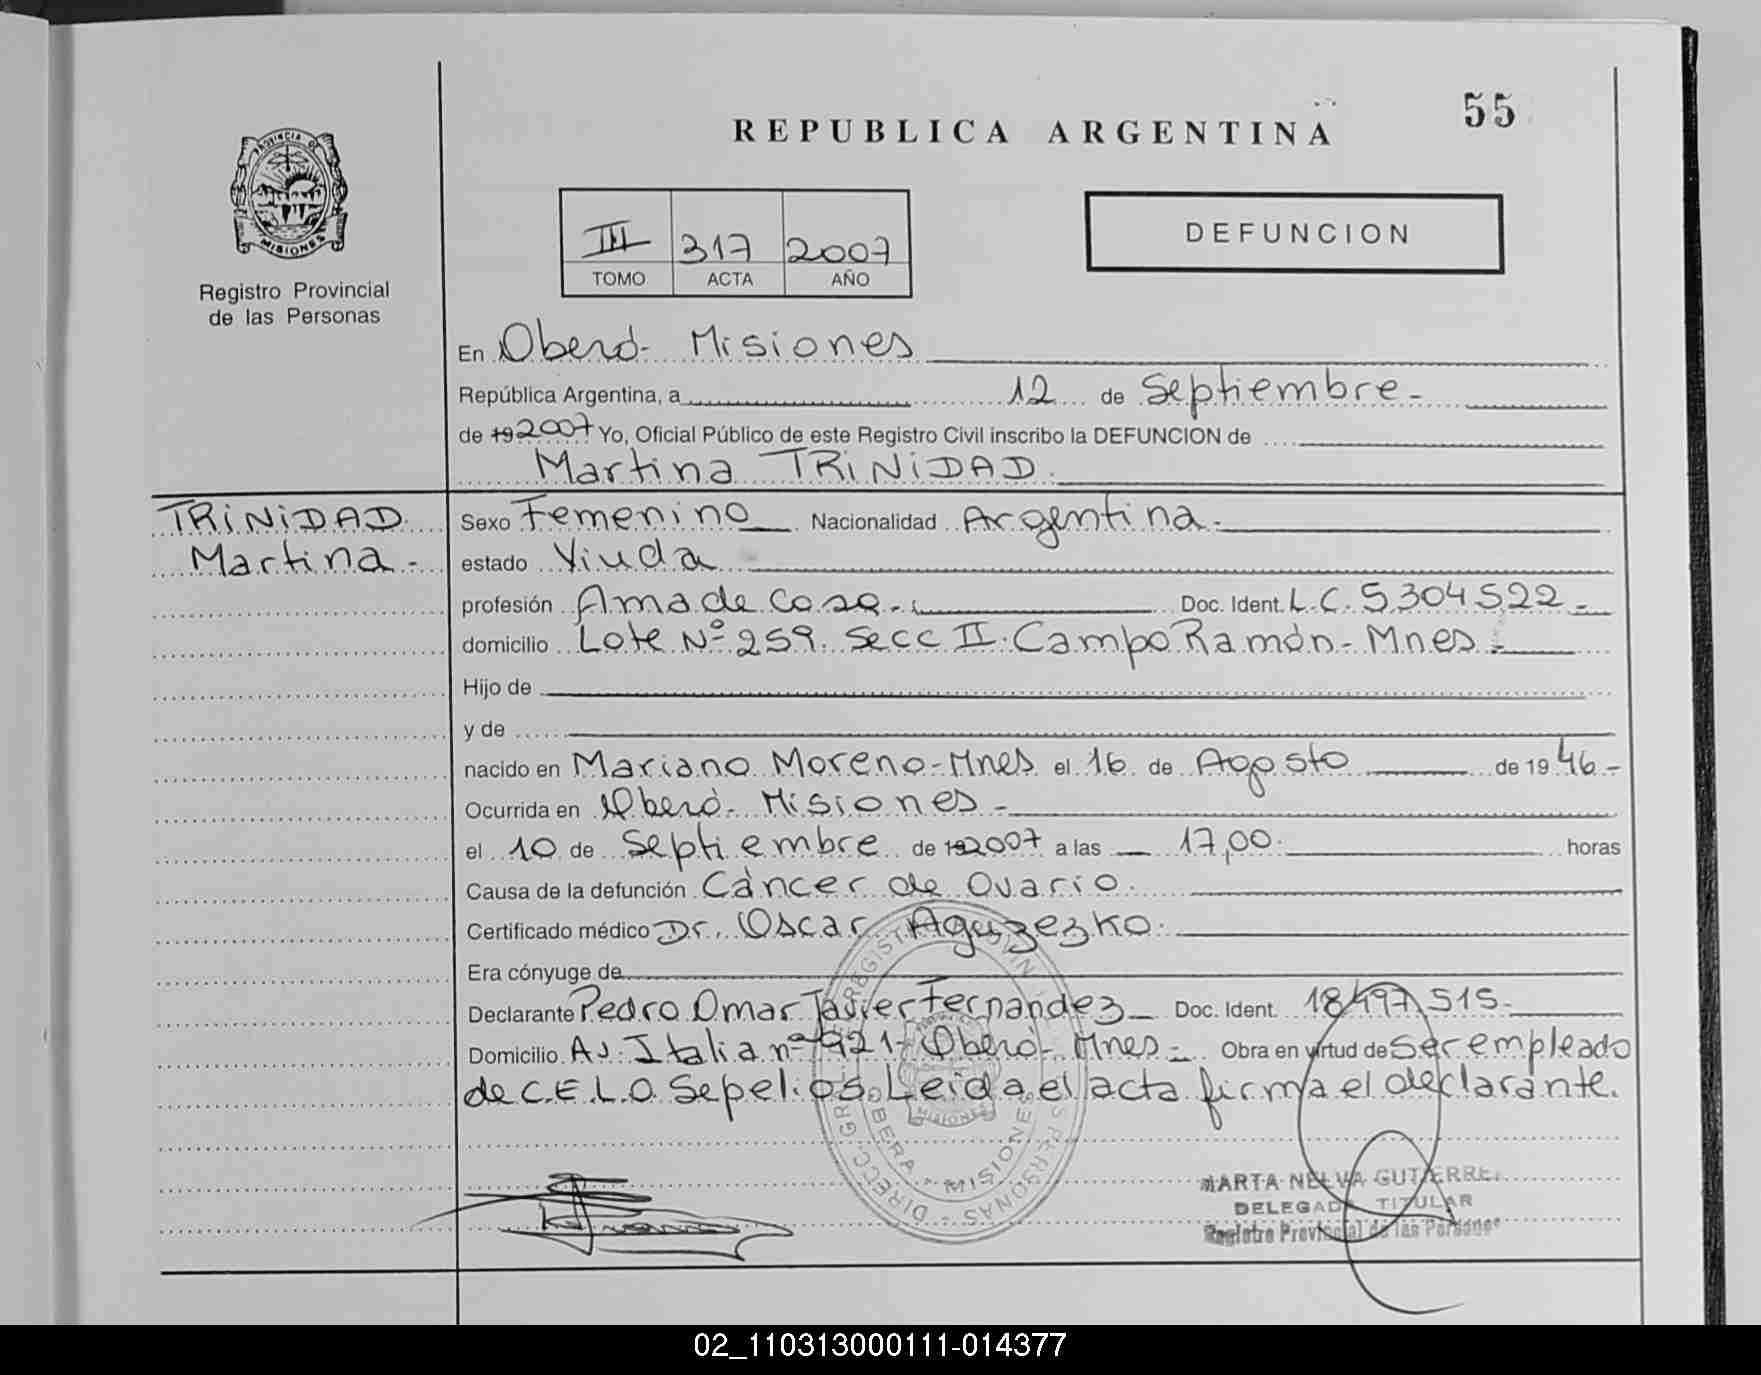 55
REPUBLICA ARGENTINA
PROVINCIA DE
MISIONES
Registro Provincial
de las Personas
III 317 2007
TOMO ACTA AÑO
DEFUNCION
En Oberá- Misiones
República Argentina, a 12 de Septiembre-
de 19 2007 Yo, Oficial Público de este Registro Civil inscribo la DEFUNCION de
Martina TRiNiDAD.
TRiNiDAD
Martina-
Sexo Femenino Nacionalidad Argentina-
estado Viuda
profesión Ama de Casa- Doc. Ident. L.C. 5304522-
domicilio Lote Nº 259. Secc II. Campo Ramón- Mnes-
Hijo de
y de
nacido en Mariano Moreno-Mnes el 16 de Agosto de 19 46-
Ocurrida en Oberá- Misiones-
el 10 de Septiembre de 19 2007 a las 17,00. horas
Causa de la defunción Cáncer de Ovario.
Certificado médico Dr. Oscar Aguzezko.
Era cónyuge de
Declarante Pedro Omar Javier Fernandez Doc. Ident. 18497515-
Domicilio Av. Italia nº 921- Oberá- Mnes- Obra en virtud de Ser empleado
de C.E.L.O Sepelios. Leída el acta firma el declarante.
OBERA - MISIONES
MARTA NELVA GUTIERRE
DELEGADA TITULAR
Registro Provincial de las Personas
02_110313000111-014377